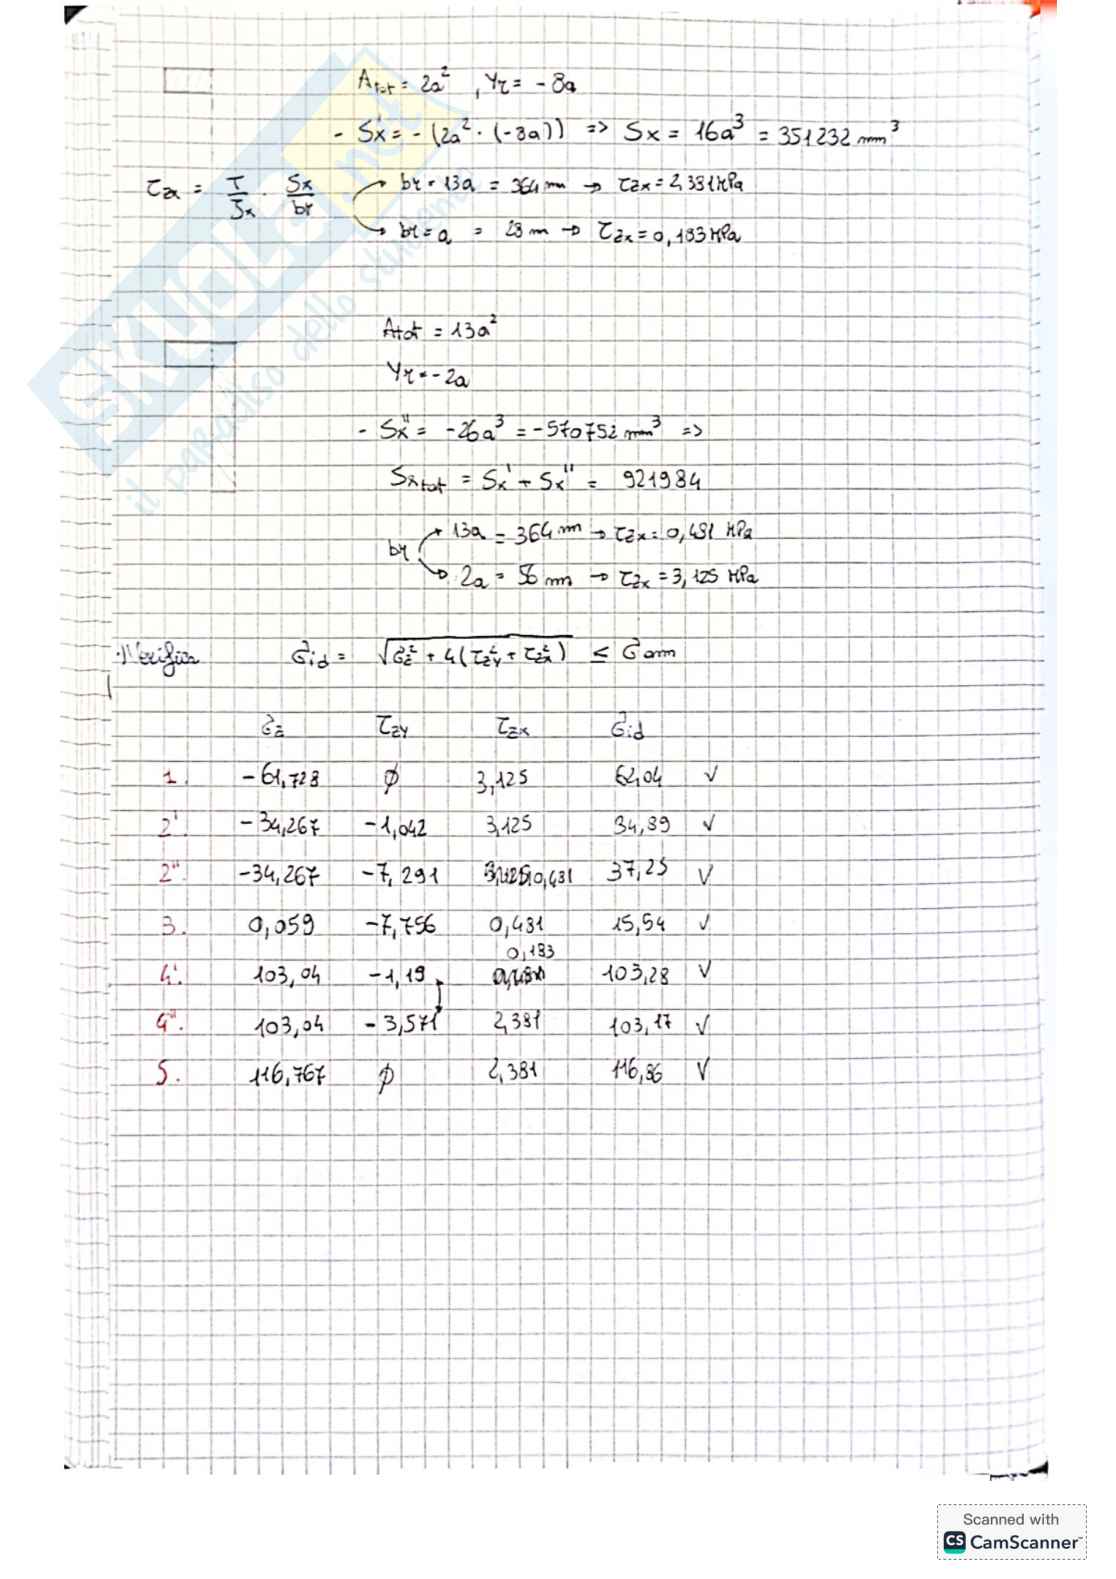 Atot = 2a² , Yr = - 8a
- Sx' = - (2a² · (-8a)) => Sx = 16a³ = 351232 mm³
τzx = T/Jx · Sx/br
br = 13a = 364 mm → τzx = 2,381 MPa
br = a = 28 m → τzx = 0,183 MPa
Atot = 13a²
Yr = -2a
- Sx'' = -26a³ = -570752 mm³ =>
Sxtot = Sx' + Sx'' = 921984
br
13a = 364 mm → τzx = 0,481 MPa
2a = 56 mm → τzx = 3,125 MPa
· Verifica σid = √σz² + 4(τzy² + τzx²) ≤ σamm
σz τzy τzx σid
1. -61,728 ∅ 3,125 62,04 √
2'. -34,267 -1,042 3,125 34,89 √
2". -34,267 -7,291 0,481 37,25 √
3. 0,059 -7,756 0,481 15,54 √
0,183
4'. 103,04 -1,19 103,28 √
4". 103,04 -3,571 2,381 103,17 √
5. 116,767 ∅ 2,381 116,86 √
SKUOLA.net
il paradiso dello studente
Scanned with
CS CamScanner